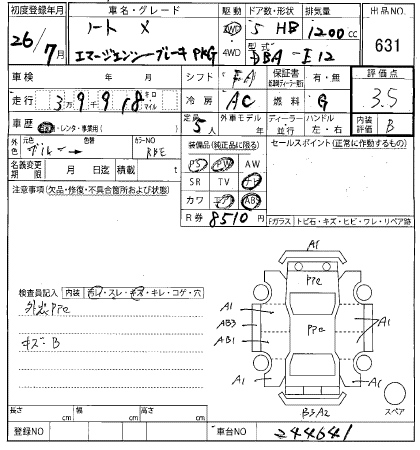 初度登録年月 車名・グレード 駆動 ドア数・形状 排気量 出品NO
26/7月 ノート X 2WD 5 HB 1200cc 631
エマージェンシーブレーキPKG 4WD 型式 DBA-E12
車検 年 月 シフト FA 保証書 有・無 評価点
走行 3万9千918 キロ マイル 冷房 AC 燃料 G 3.5
車歴 自家・レンタ・事業用( ) 定員 5人 外車モデル 年 ディーラー 並行 ハンドル 左・右 内装評価 B
外色 元色 ブルー → 色替 カラーNO RBE
名義変更期限 月 日迄 積載 t
装備品(純正品に限る) セールスポイント(正常に作動するもの)
PS PW AW
SR TV ナビ
カワ エアB ABS
R券 8510円
注意事項(欠品・修復・不具合箇所および状態)
Fガラス トビ石・キズ・ヒビ・ワレ・リペア跡
検査員記入 内装 汚レ・スレ・キズ・キレ・コゲ・穴
外装PPc
キズB
A1
PPc
A1
AB3
AB1
PPc
A1
A1
A1
B3A2
スペア
長さ cm 幅 cm 高さ cm
登録NO 車台NO 244641